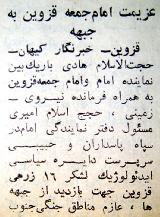 عزیمت امام‌جمعه قزوین به
جبهه
قزوین - خبرنگار کیهان -
حجت‌الاسلام هادی باریک‌بین
نماینده امام وامام جمعه‌قزوین
به همراه فرمانده نیروی
زمینی، حجت اسلام امیری
مسئول دفتر نمایندگی امام‌در
سپاه پاسداران و حبیبی
سرپرست دایره سیاسی
ایدئولوژیک لشگر ۱۶ زرهی
قزوین جهت بازدید از جبهه
ها، عازم مناطق جنگی‌جنوب